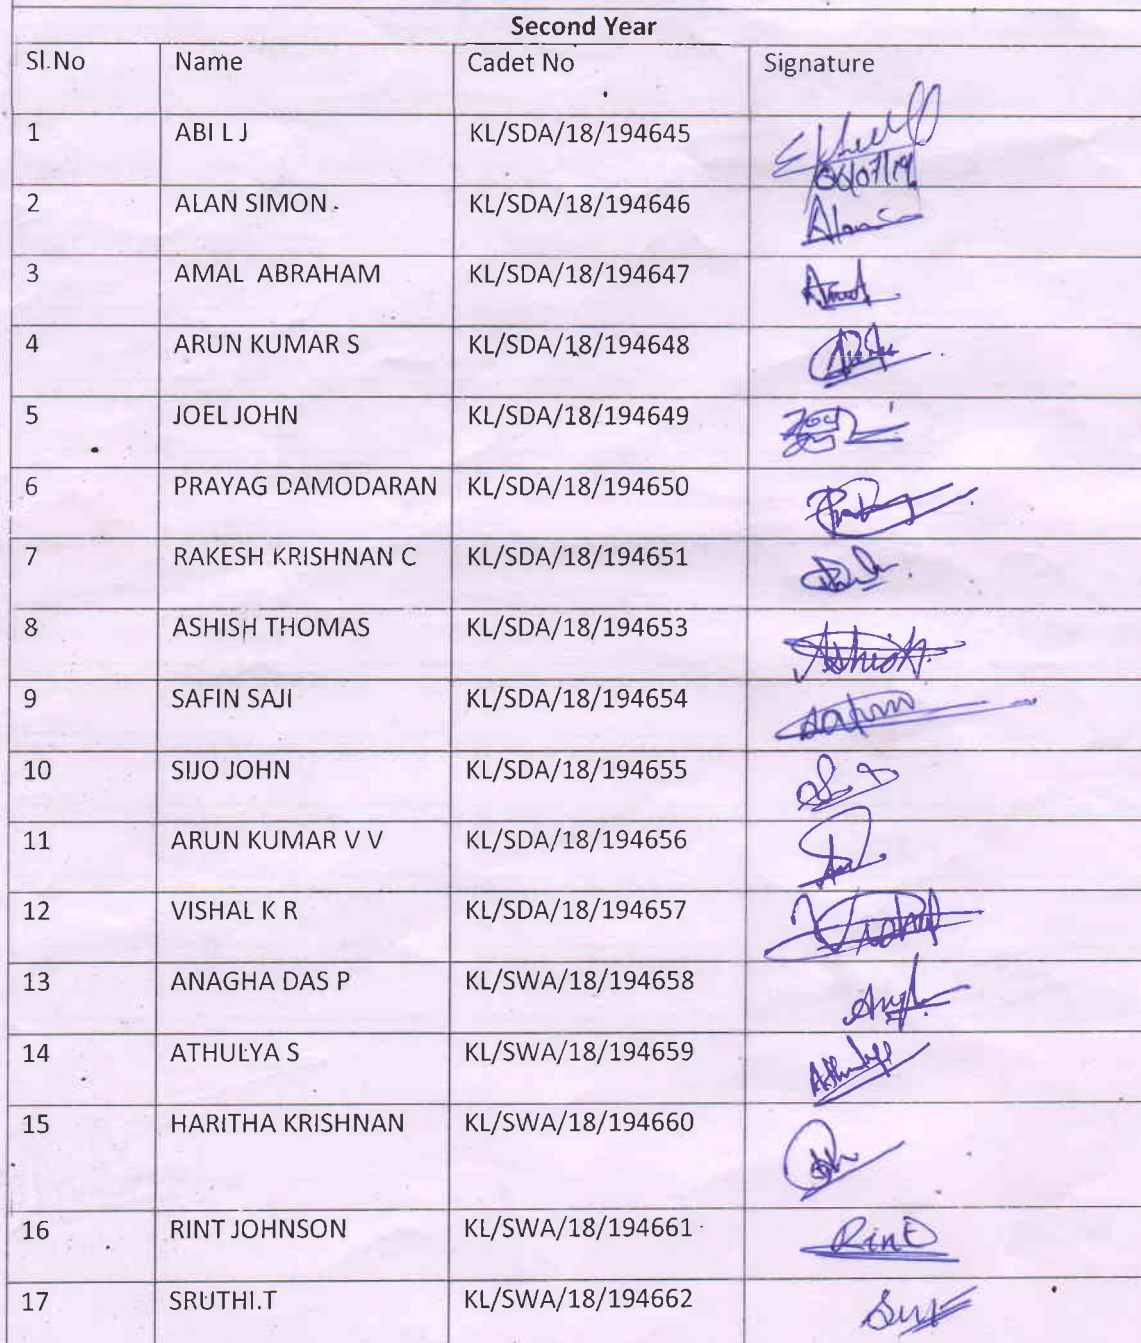 Second Year
Sl.No Name Cadet No Signature
1 ABI L J KL/SDA/18/194645
06/07/19
2 ALAN SIMON. KL/SDA/18/194646 Alan
3 AMAL ABRAHAM KL/SDA/18/194647 Amal
4 ARUN KUMAR S KL/SDA/18/194648
5 JOEL JOHN KL/SDA/18/194649
6 PRAYAG DAMODARAN KL/SDA/18/194650
7 RAKESH KRISHNAN C KL/SDA/18/194651
8 ASHISH THOMAS KL/SDA/18/194653 Ashish
9 SAFIN SAJI KL/SDA/18/194654 Safin
10 SIJO JOHN KL/SDA/18/194655
11 ARUN KUMAR V V KL/SDA/18/194656
12 VISHAL K R KL/SDA/18/194657 Vishal
13 ANAGHA DAS P KL/SWA/18/194658
14 ATHULYA S KL/SWA/18/194659 Athulya
15 HARITHA KRISHNAN KL/SWA/18/194660
16 RINT JOHNSON KL/SWA/18/194661 Rint
17 SRUTHI.T KL/SWA/18/194662